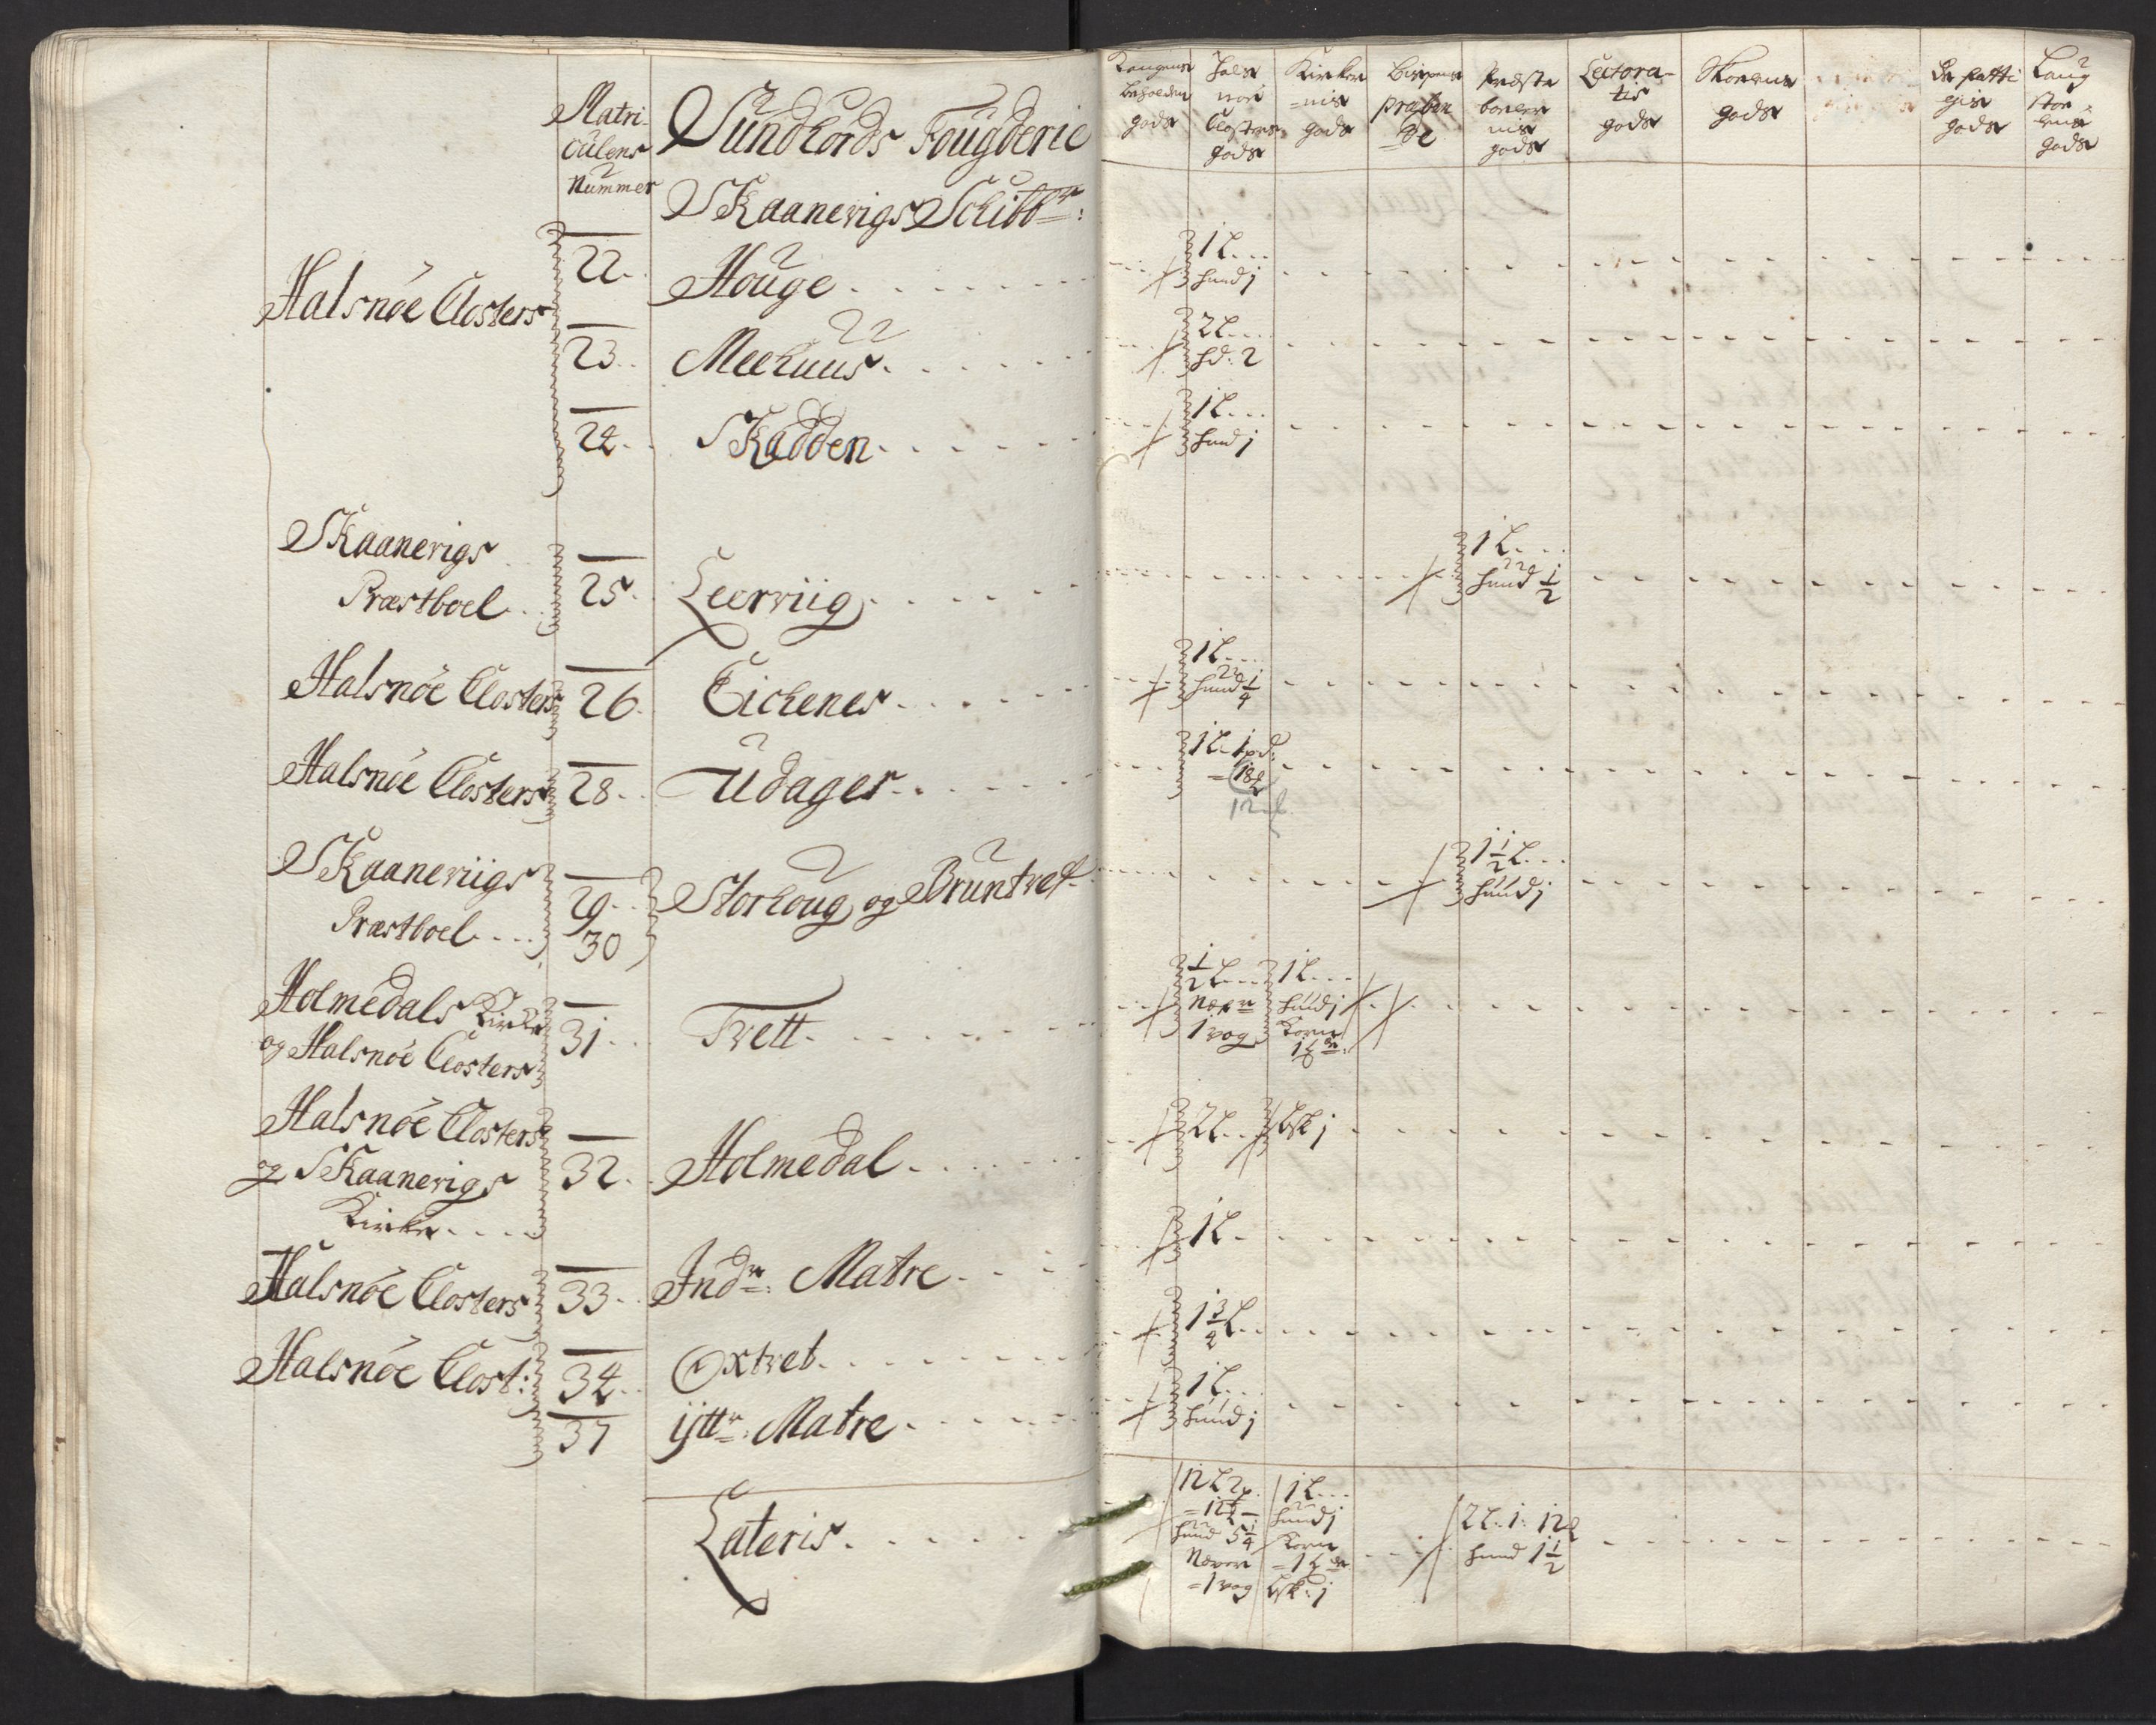 Matri-
culens
Nummer
Sundhords Fougderie
Skaanevigs Schibbr:
Halsnöe Closters
22. Houge
23. Meehuus
24. Skadden
Skaanevigs
Præstboel
25. Leerviig
Halsnöe Closters 26. Eichenes
Halsnöe Closters 28. Udager
Skaaneviigs
Præstboel
29.
30
Storhoug og Bruntvet
Holmedals Kirke
og Halsnöe Closters
31. Tvett
Halsnöe Closters
og Skaanevigs
Kirke
32. Holmedal
Halsnöe Closters 33. Indr: Matre
Halsnöe Clost: 34. Oxtvet
37 ÿttr: Matre
Lateris
Kongens
beholden
gods
Hals
nöe
Closters
gods
Kirker
=nis
gods
Bispens
præben
de
Præste
boler
nis
gods
Lectora-
tis
gods
Skolens
gods
De fatti
gis
gods
Laug
stoe
lens
gods
1 L
hud j
2 L
hd: 2
1 L
hud j
1 L
hud 1/2
1 L
hud 1/4
1 L 1 pd:
= 18
12
1 1/2 L
hud j
1/2 L
Næver
1 vog
1 L
hud j
Korn
2 L
j
1 L
1 3/4 L
1 L
hud j
12 L 2
= 12
hud 5 1/4
Næver
= 1 vog
1 L
hud j
Korn
2 L: 1: 12
hud 1 1/2